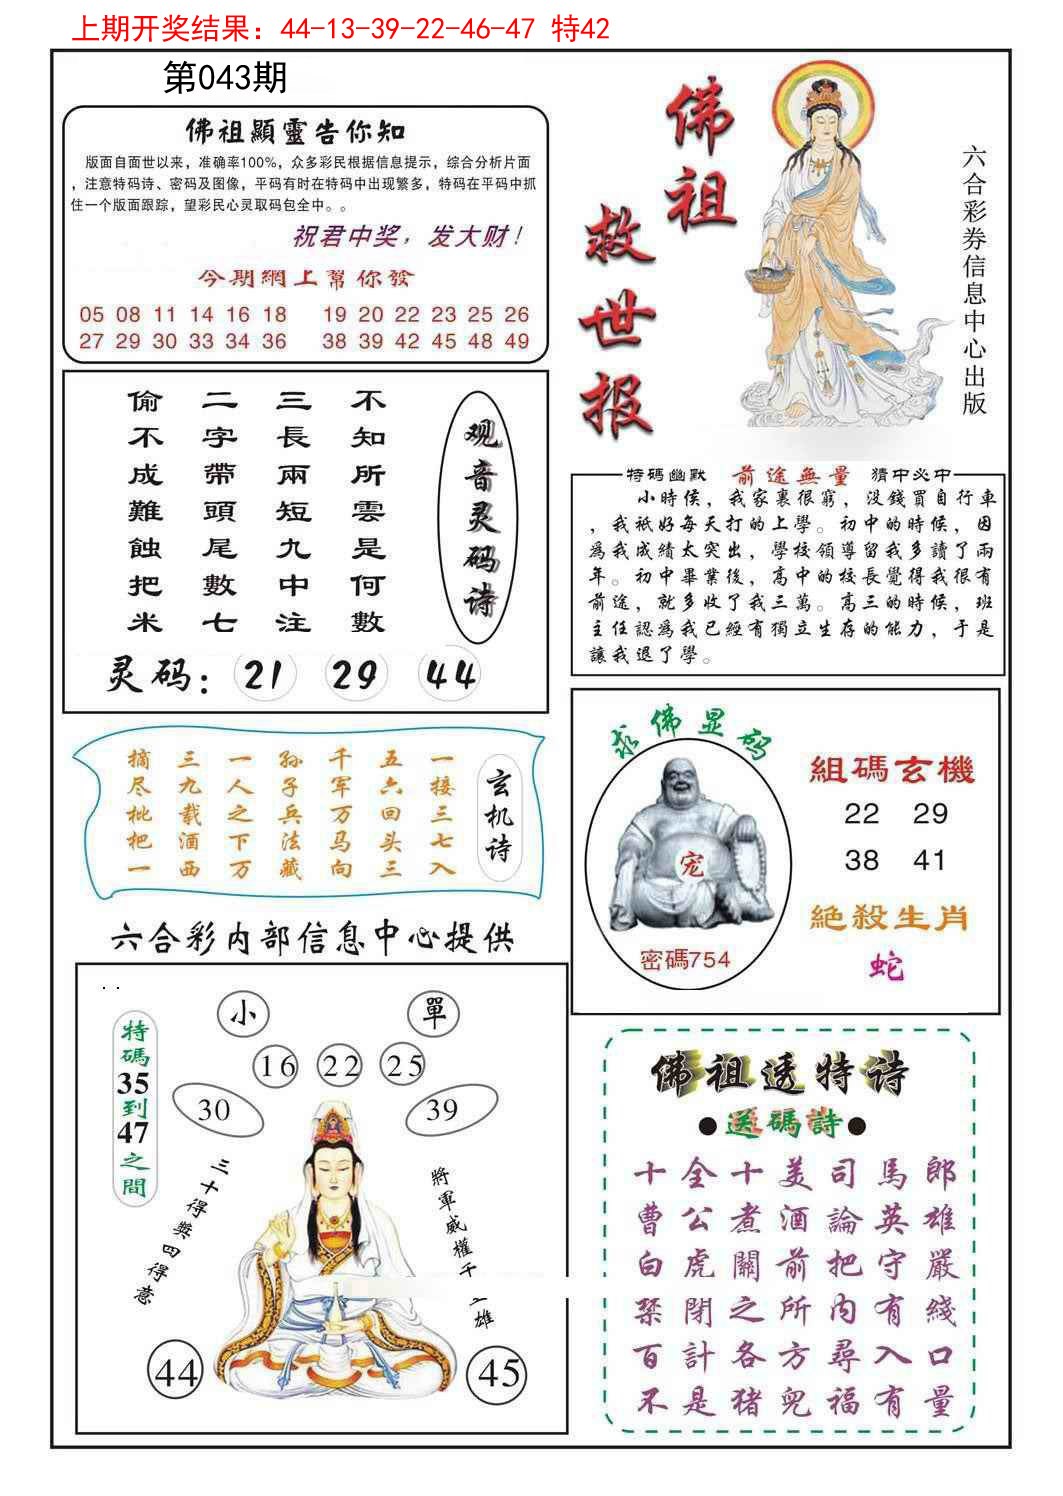 上期开奖结果：44-13-39-22-46-47 特42
第043期
佛祖顯靈告你知
版面自面世以来，准确率100%，众多彩民根据信息提示，综合分析片面
，注意特码诗、密码及图像，平码有时在特码中出现繁多，特码在平码中抓
住一个版面跟踪，望彩民心灵取码包全中。。
祝君中奖，发大财！
今期網上幫你發
05 08 11 14 16 18 19 20 22 23 25 26
27 29 30 33 34 36 38 39 42 45 48 49
佛祖
救世报
六合彩券信息中心出版
观音灵码诗
不知所雲是何數
三長兩短九中注
二字帶頭尾數七
偷不成難蝕把米
灵码：21 29 44
特碼幽默 前途無量 猜中必中
小時侯，我家裏很窮，没錢買自行車
，我衹好每天打的上學。初中的時候，因
爲我成績太突出，學校領導留我多讀了兩
年。初中畢業後，高中的校長覺得我很有
前途，就多收了我三萬。高三的時候，班
主任認爲我已經有獨立生存的能力，于是
讓我退了學。
玄机诗
一接三七入
五六回头三
千军万马向
孙子兵法藏
一人之下万
三九载酒西
摘尽枇杷一
求佛显码
宠
密碼754
組碼玄機
22 29
38 41
絕殺生肖
蛇
六合彩内部信息中心提供
. .
小 單
16 22 25
30 39
特碼35到47之間
三十得獎四得意
將軍威權千
雄
44 45
佛祖透特诗
●送碼詩●
十全十美司馬郎
曹公煮酒論英雄
白虎關前把守嚴
禁閉之所内有綫
百計各方尋入口
不是猪兜福有量